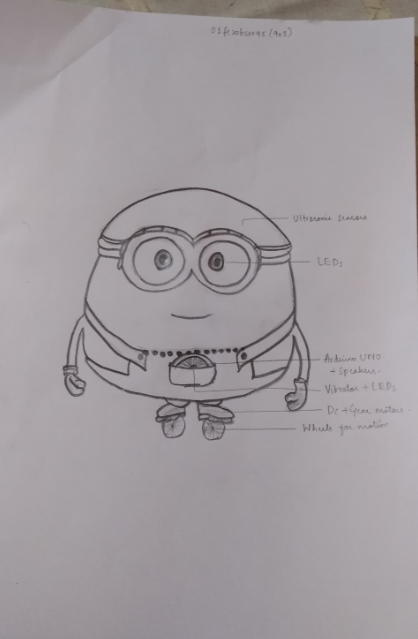 Ultrasonic sensors
LEDs
Arduino UNO
+ Speakers.
Vibrator + LEDs
DC + Gear motors.
Wheels for motion